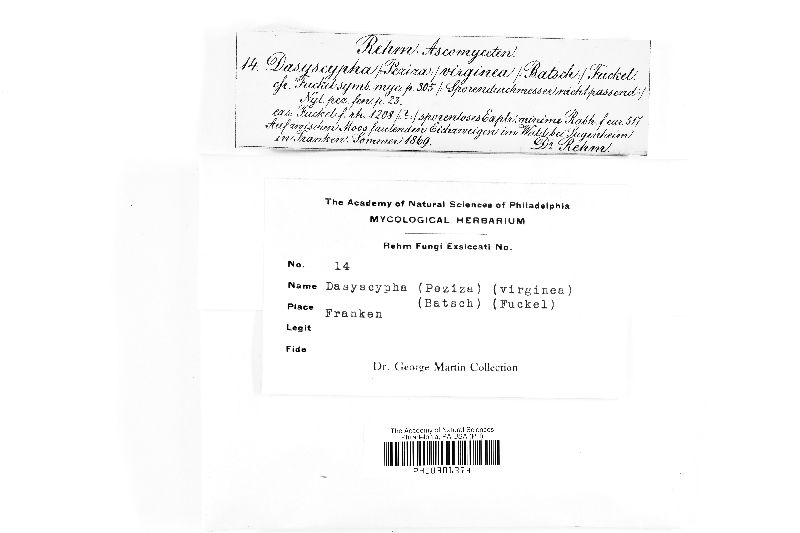 Rehm. Ascomyceten.
14. Dasyscypha /: Peziza :/ virginea /: Batsch :/ Fuckel.
cfr. Fuckel symb. myc. p. 305 /: Sporendurchmesser nicht passend :/
Nyl. pez. fen. p. 23.
exs. Fuckel f. rh. 1208 /: ? :/ sporenloses Expl., minime Rabh. f. eur. 517
Auf zwischen Moos faulenden Eichzweigen im Wald bei Sugenheim
in Franken. Sommer 1869. Dr. Rehm.
The Academy of Natural Sciences of Philadelphia
MYCOLOGICAL HERBARIUM
Rehm Fungi Exsiccati No.
No. 14
Name Dasyscypha (Peziza) (virginea)
(Batsch) (Fuckel)
Place Franken
Legit
Fide
Dr. George Martin Collection
The Academy of Natural Sciences
Philadelphia, PA USA (PH)